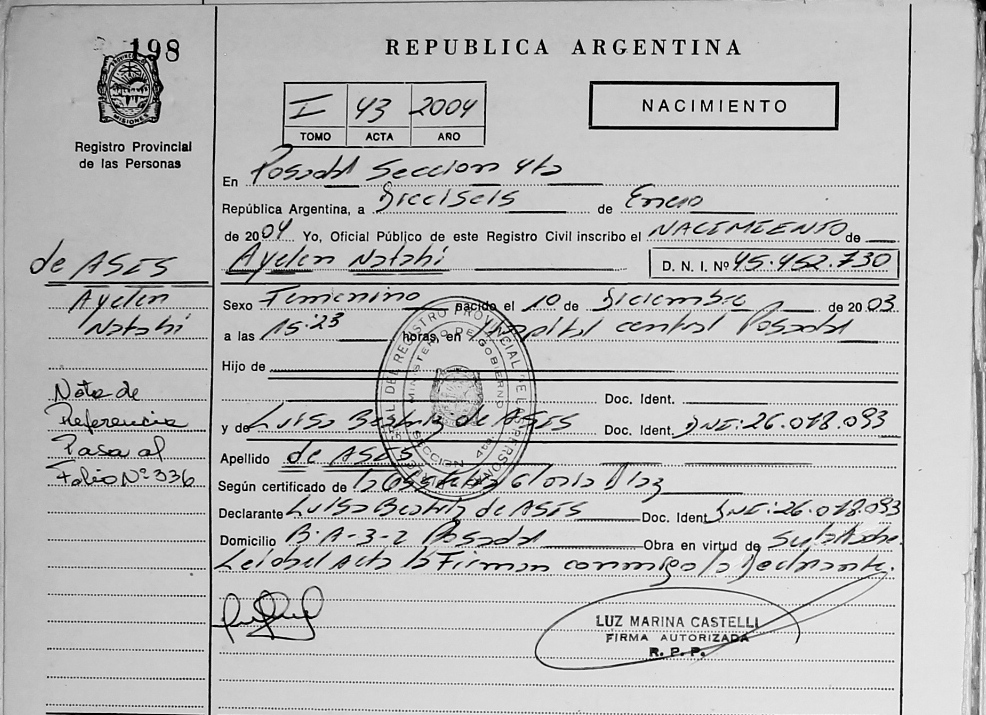 198
REPUBLICA ARGENTINA
MISIONES
Registro Provincial
de las Personas
I 43 2004
TOMO ACTA AÑO
NACIMIENTO
En Posadas Seccion 4ta
República Argentina, a Dieciseis de Enero
de 2004 Yo, Oficial Público de este Registro Civil inscribo el NACIMIENTO de
Ayelen Natahi D. N. I. Nº 45.452.730
de ASIS
Ayelen
Natahi
Sexo Femenino nacido el 10 de Diciembre de 2003
a las 15:23 horas, en Hospital central Posadas
Hijo de
Doc. Ident.
y de Luisa Beatriz de ASIS Doc. Ident. DNI: 26.078.093
Apellido de ASIS
Según certificado de la Gloria Diaz
Declarante Luisa Beatriz de ASIS Doc. Ident DNI: 26.078.093
Domicilio B: A-3-2 Posadas Obra en virtud de
Leida el Acta la Firman conmigo la Declarante.
Nota de
Referencia
Pasa al
Folio Nº 336
REGISTRO PROVINCIAL DE LAS PERSONAS
MINISTERIO DE GOBIERNO
SECCION 4ta
LUZ MARINA CASTELLI
FIRMA AUTORIZADA
R. P. P.